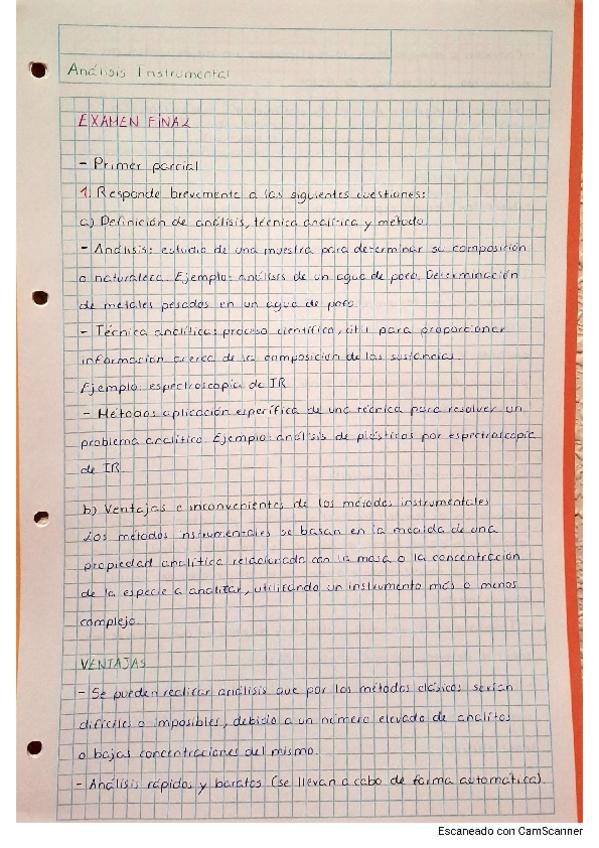 Análisis Instrumental
EXAMEN FINAL
- Primer parcial
1. Responde brevemente a las siguientes cuestiones:
a) Definición de análisis, técnica analítica y método
- Análisis: estudio de una muestra para determinar su composición
o naturaleza. Ejemplo: análisis de un agua de pozo. Determinación
de metales pesados en un agua de pozo
- Técnica analítica: proceso científico, útil para proporcionar
información acerca de la composición de las sustancias.
Ejemplo: espectroscopia de IR
- Método: aplicación específica de una técnica para resolver un
problema analítico. Ejemplo: análisis de plásticos por espectroscopia
de IR.
b) Ventajas e inconvenientes de los métodos instrumentales
Los métodos instrumentales se basan en la medida de una
propiedad analítica relacionada con la masa o la concentración
de la especie a analizar, utilizando un instrumento más o menos
complejo.
VENTAJAS
- Se pueden realizar análisis que por los métodos clásicos serían
difíciles o imposibles, debido a un número elevado de analitos
o bajas concentraciones del mismo.
- Análisis rápidos y baratos (se llevan a cabo de forma automática).
Escaneado con CamScanner